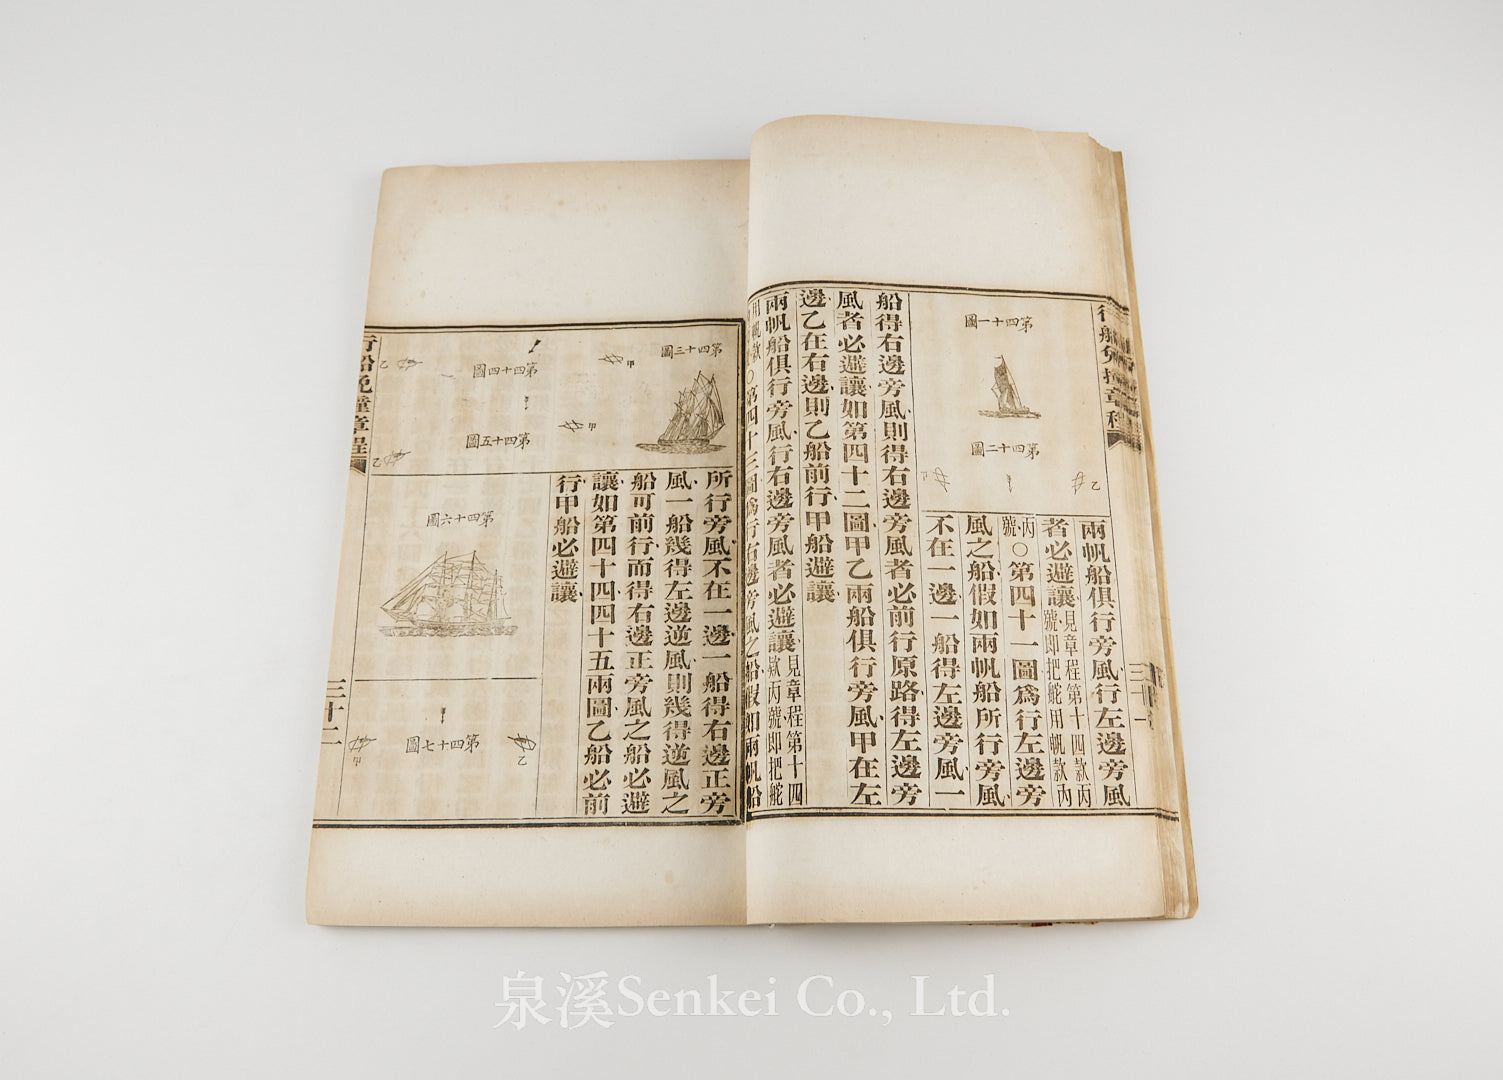 第四十一圖
第四十二圖
乙
兩帆船俱行旁風行左邊旁風
者必避讓見章程第十四款丙號即把舵用帆款內
丙號〇第四十一圖爲行左邊旁
風之船假如兩帆船所行旁風
不在一邊一船得左邊旁風一
船得右邊旁風則得右邊旁風者必前行原路得左邊旁
風者必避讓如第四十二圖甲乙兩船俱行旁風甲在左
邊乙在右邊則乙船前行甲船避讓
兩帆船俱行旁風行右邊旁風者必避讓見章程第十四款丙號即把舵
用帆款〇第四十三圖爲行右邊旁風之船假如兩帆船
第四十三圖
甲
第四十四圖
乙
甲
第四十五圖
乙
所行旁風不在一邊一船得右邊正旁
風一船幾得左邊逆風則幾得逆風之
船可前行而得右邊正旁風之船必避
讓如第四十四四十五兩圖乙船必前
行甲船必避讓
第四十六圖
乙
第四十七圖
甲
行船免撞章程
三十二
泉溪Senkei Co., Ltd.